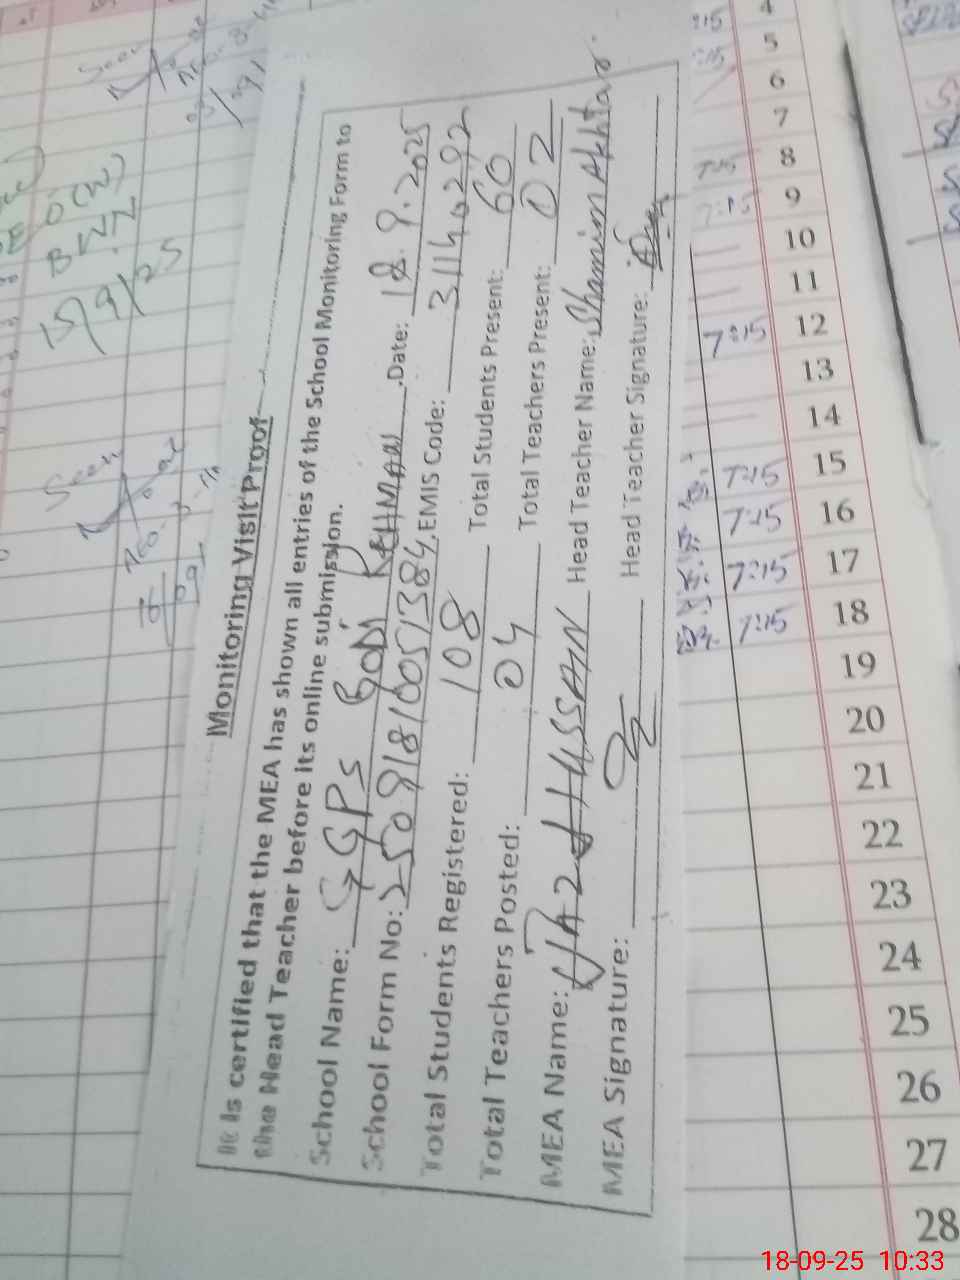 Monitoring Visit Proof
It is certified that the MEA has shown all entries of the School Monitoring Form to
the Head Teacher before its online submission.
School Name: GGPS Bodi Rehmani .Date: 18.9.2025
School Form No: 250918/005/384. EMIS Code: 31140292
Total Students Registered: 108 Total Students Present: 60
Total Teachers Posted: 04 Total Teachers Present: 02
MEA Name: HUSSAIN Head Teacher Name: Shamim Akhtar
MEA Signature: Head Teacher Signature:
Seen
Seen
15/9/25
7:15
7:15
7:15
7:15
7:15
7:15
4
5
6
7
8
9
10
11
12
13
14
15
16
17
18
19
20
21
22
23
24
25
26
27
28
18-09-25 10:33